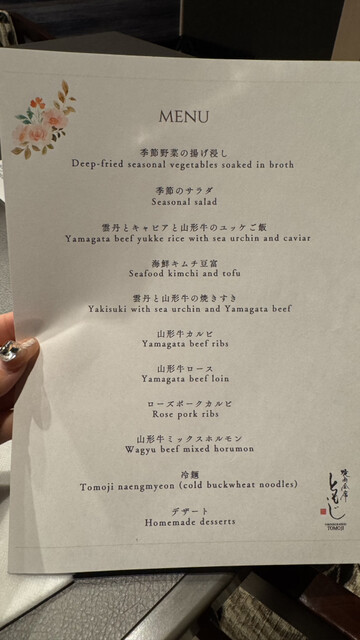 MENU
季節野菜の揚げ浸し
Deep-fried seasonal vegetables soaked in broth
季節のサラダ
Seasonal salad
雲丹とキャビアと山形牛のユッケご飯
Yamagata beef yukke rice with sea urchin and caviar
海鮮キムチ豆富
Seafood kimchi and tofu
雲丹と山形牛の焼きすき
Yakisuki with sea urchin and Yamagata beef
山形牛カルビ
Yamagata beef ribs
山形牛ロース
Yamagata beef loin
ローズポークカルビ
Rose pork ribs
山形牛ミックスホルモン
Wagyu beef mixed horumon
冷麺
Tomoji naengmyeon (cold buckwheat noodles)
デザート
Homemade desserts
ともじ
TOMOJI